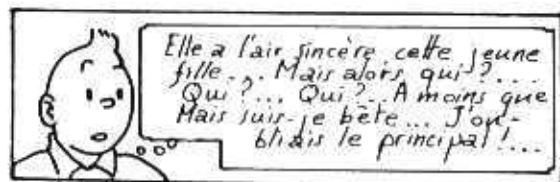 Elle a l'air sincère cette jeune
fille... Mais alors, qui ?....
Qui ?... Qui ?... A moins que
Mais suis-je bête... J'ou-
bliais le principal !...